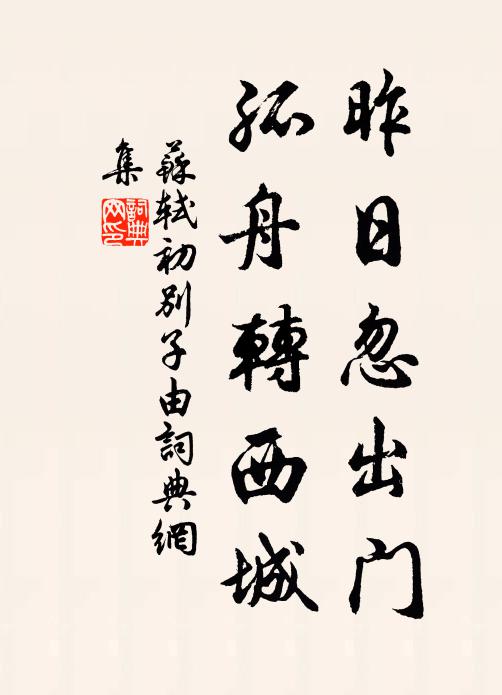 昨日忽出门
孤舟轉西城
蘇軾初别子由詞典網
集
詞典
网印